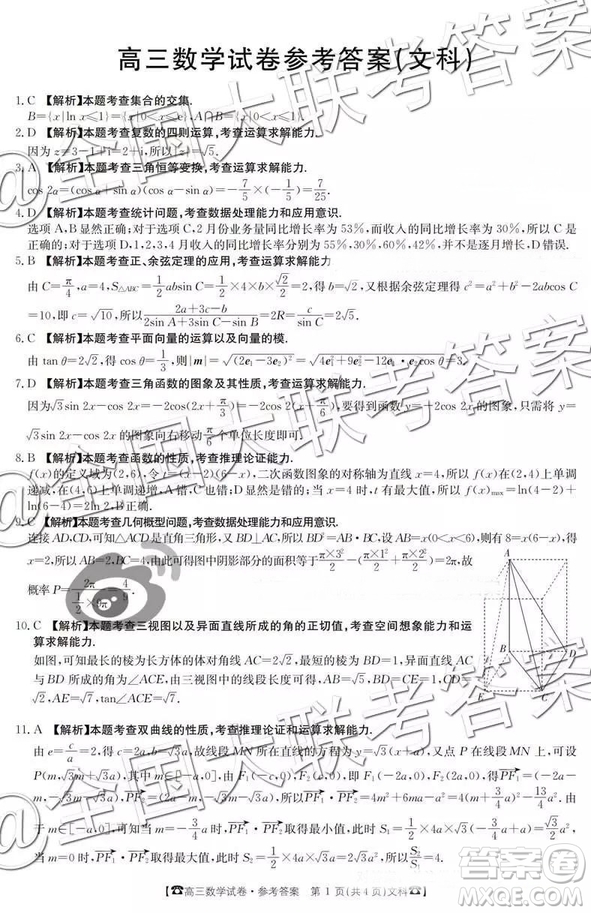 高三数学试卷参考答案(文科)
1. C 【解析】本题考查集合的交集.
B={x|ln x≤1}={x|0<x≤e},A∩B=
2. D 【解析】本题考查复数的四则运算,考查运算求解能力.
因为z=3-1+i=2+i,所以|z|=√5.
3. A 【解析】本题考查三角恒等变换,考查运算求解能力.
cos 2α=(cos α+sin α)(cos α-sin α)=-7/5×(-1/5)=7/25.
4. D 【解析】本题考查统计问题,考查数据处理能力和应用意识.
选项A,B显然正确;对于选项C,2月份业务量同比增长率为53%,而收入的同比增长率为30%,所以C是
正确的;对于选项D,1,2,3,4月收入的同比增长率分别为55%,30%,60%,42%,并不是逐月增长,D错误.
5. B 【解析】本题考查正、余弦定理的应用,考查运算求解能力.
由C=π/4,a=4,S△ABC=1/2absin C=1/2×4×b×√2/2=2,得b=√2,又根据余弦定理得c²=a²+b²-2abcos C
=10,即c=√10,所以(2a+3c-b)/(2sin A+3sin C-sin B)=2R=c/sin C=2√5.
6. C 【解析】本题考查平面向量的运算以及向量的模.
由tan θ=2√2,得cos θ=1/3,则|m|=√(2e₁-3e₂)²=√4e₁²+9e₂²-12e₁·e₂=
7. D 【解析】本题考查三角函数的图象及其性质,考查运算求解能力.
因为√3sin 2x-cos 2x=-2cos(2x+π/3)=-2cos2(x+π/6),所以要得到函数y=-2cos 2x的图象,只需将y=
√3sin 2x-cos 2x的图象向右移动π/6个单位长度即可.
8. B 【解析】本题考查函数的性质,考查推理论证能力.
f(x)的定义域为(2,6),令t=(x-2)(6-x),二次函数图象的对称轴为直线x=4,所以f(x)在(2,4)上单调
递减,在(4,6)上单调递减,A错误,C也错误,D显然错误;当x=4时,t有最大值,所以f(x)max=ln(4-2)+
ln(6-4)=2ln 2,B正确.
9. C 【解析】本题考查几何概型问题,考查数据处理能力和应用意识.
连接AD,CD,可知△ACD是直角三角形,又BD⊥AC,所以BD²=AB·BC,设AB=x(0<x<6),则有8=
x(6-x),所以AB=2,BC=4,由此可得图中阴影部分的面积等于π×3²/2-(π×1²/2+π×2²/2)=2π,故
概率P=2π/(1/2×9π)=4/9.
10. C 【解析】本题考查三视图以及异面直线所成的角的正切值,考查空间想象能力和运
算求解能力.
如图,可知最长的棱为长方体的体对角线AC=2√2,最短的棱为BD=1,异面直线
AC与BD所成的角为∠ACE,由三视图中的线段长度可得,AB=√5,BD=CE=1,CD
=√2,AE=√7,tan∠ACE=√7.
11. A 【解析】本题考查双曲线的性质,考查推理论证和运算求解能力.
由e=c/a=2,得c=2a,b=√3a,故线段MN所在直线的方程为y=√3(x+a),又点P在线段MN上,可设
P(m,√3m+√3a),其中m∈[-a,0],由F₁(-c,0),F₂(c,0),即F₁(-2a,0),F₂(2a,0),得PF₁=(-2a-
m,-√3m-√3a),PF₂=(2a-m,-√3m-√3a),所以PF₁·PF₂=4m²+6ma-a²=4(m+3/4a)²-13/4a².由
于m∈[-a,0],可知当m=-3/4a时,PF₁·PF₂取得最小值,此时S₁=1/2×4a×√3(-3/4a+a)=√3/2a²,
当m=0时,PF₁·PF₂取得最大值,此时S₂=1/2×4a×√3a=
高三数学试卷·参考答案 第1页(共4页)文科
@全国大联考答案
答案圈